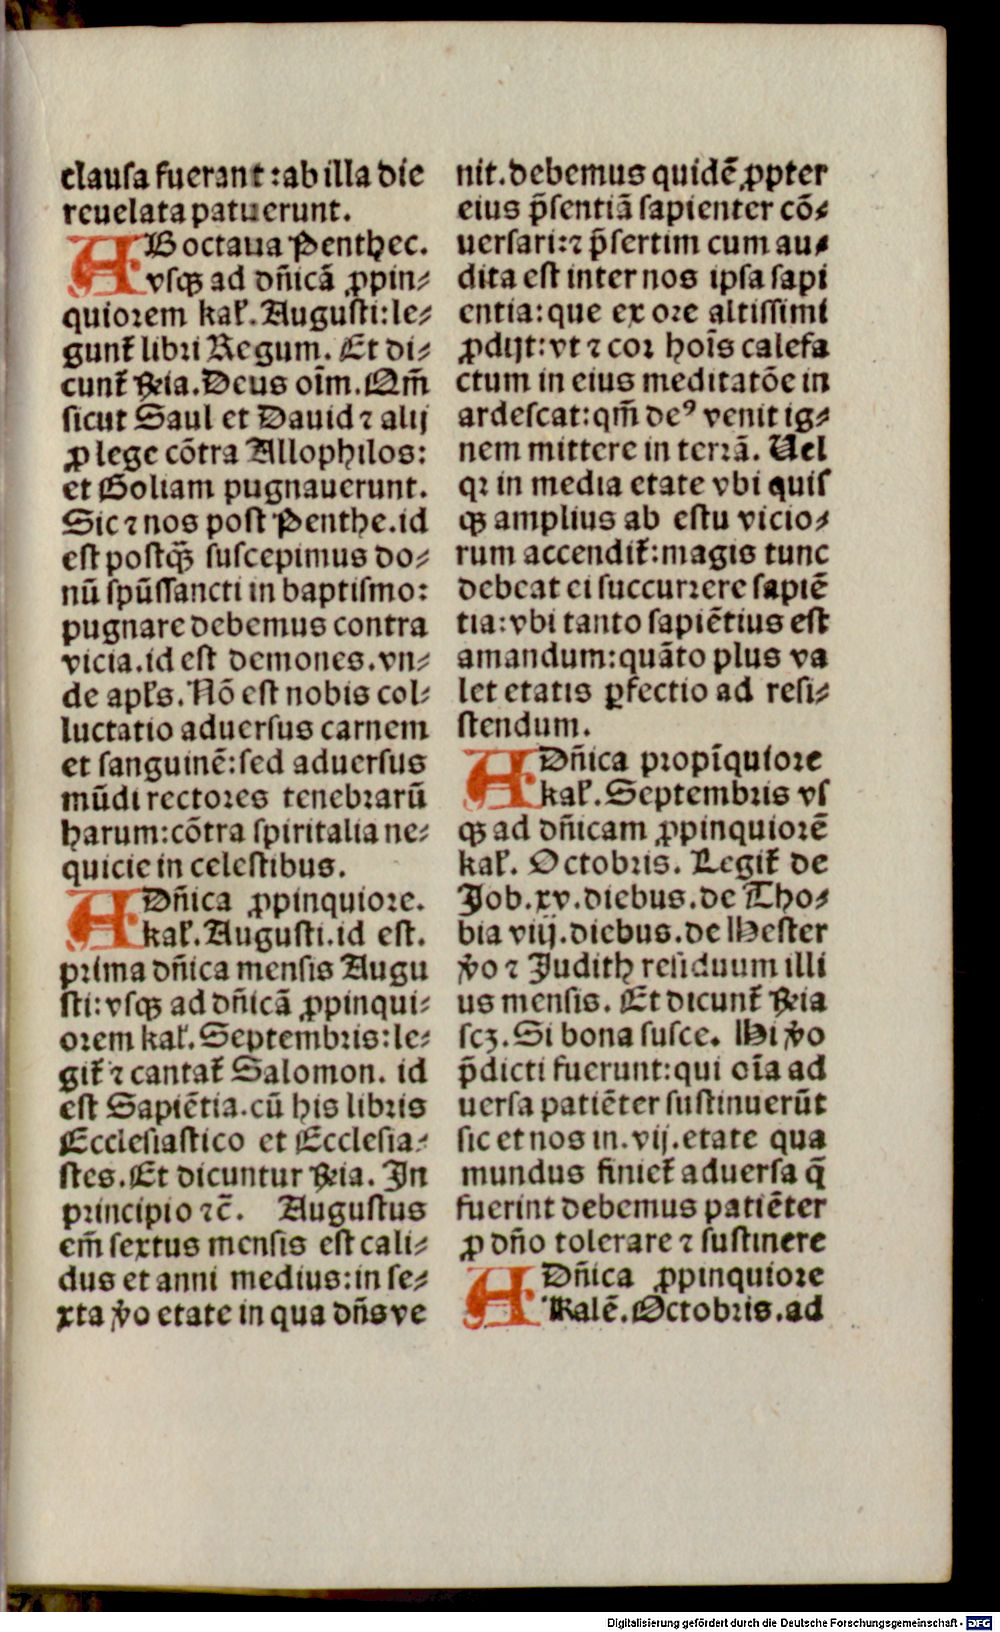 clausa fuerant:ab illa die
reuelata patuerunt.
AB octaua Penthec.
vsqꝫ ad dñicã ꝓpin⸗
quiorem kaꝉ. Augusti:le⸗
gunt᷑ libri Regum. Et di⸗
cunt᷑ ℟ia. Deus oĩm. Qm̃
sicut Saul et Dauid ⁊ alij
ꝓ lege cõtra Allophilos:
et Goliam pugnauerunt.
Sic ⁊ nos post Penthe.id
est postqꝫ̃ suscepimus do⸗
nũ spũssancti in baptismo:
pugnare debemus contra
vicia.id est demones.vn⸗
de apꝉs. Nõ est nobis col⸗
luctatio aduersus carnem
et sanguinẽ:sed aduersus
mũdi rectores tenebrarũ
harum:cõtra spiritalia ne⸗
quicie in celestibus.
A Dñica ꝓpinquiore.
kaꝉ. Augusti.id est.
prima dñica mensis Augu
sti:vsqꝫ ad dñicã ꝓpinqui⸗
orem kaꝉ. Septembris:le⸗
git᷑ ⁊ cantat᷑ Salomon. id
est Sapiẽtia.cũ his libris
Ecclesiastico et Ecclesia⸗
stes. Et dicuntur ℟ia. In
principio ⁊c̃. Augustus
em̃ sextus mensis est cali⸗
dus et anni medius:in se⸗
xta v̾o etate in qua dñs ve
nit.debemus quidẽ ꝓpter
eius p̃sentiã sapienter cõ⸗
uersari:⁊ p̃sertim cum au⸗
dita est inter nos ipsa sapi
entia:que ex ore altissimi
ꝓdijt:vt ⁊ cor hoĩs calefa
ctum in eius meditatõe in
ardescat:qm̃ deꝰ venit ig⸗
nem mittere in terrã. Uel
qꝛ in media etate vbi quis
qꝫ amplius ab estu vicio⸗
rum accendit᷑:magis tunc
debeat ei succurrere sapiẽ
tia:vbi tanto sapiẽtius est
amandum:quãto plus va
let etatis ꝑfectio ad resi⸗
stendum.
A Dñica propĩquiore
kaꝉ. Septembris vs
qꝫ ad dñicam ꝓpinquiorẽ
kaꝉ. Octobris. Legit᷑ de
Job.xv.diebus.de Tho⸗
bia viij.diebus.de Hester
v̾o ⁊ Judith residuum illi
us mensis. Et dicunt᷑ ℟ia
scꝫ. Si bona susce. Hi v̾o
p̃dicti fuerunt:qui oĩa ad
uersa patiẽter sustinuerũt
sic et nos in.vij.etate qua
mundus finiet᷑ aduersa q̃
fuerint debemus patiẽter
ꝓ dño tolerare ⁊ sustinere
A Dñica ꝓpinquiore
Kalẽ. Octobris.ad
Digitalisierung gefördert durch die Deutsche Forschungsgemeinschaft - DFG